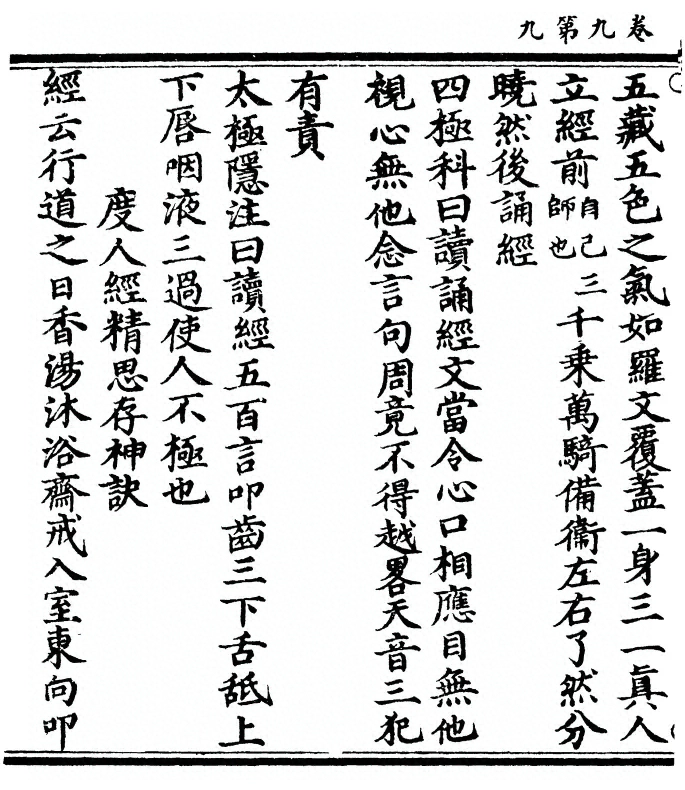 卷九第九
五藏五色之氣如羅文覆蓋一身三一眞人
立經前自己師也三千乗萬騎備衞左右了然分
曉然後誦經
四極科曰讀誦經文當令心口相應目無他
視心無他念言句周竟不得越畧天音三犯
有責
太極隱注曰讀經五百言叩齒三下舌舐上
下唇咽液三過使人不極也
度人經精思存神訣
經云行道之日香湯沐浴齋戒入室東向叩